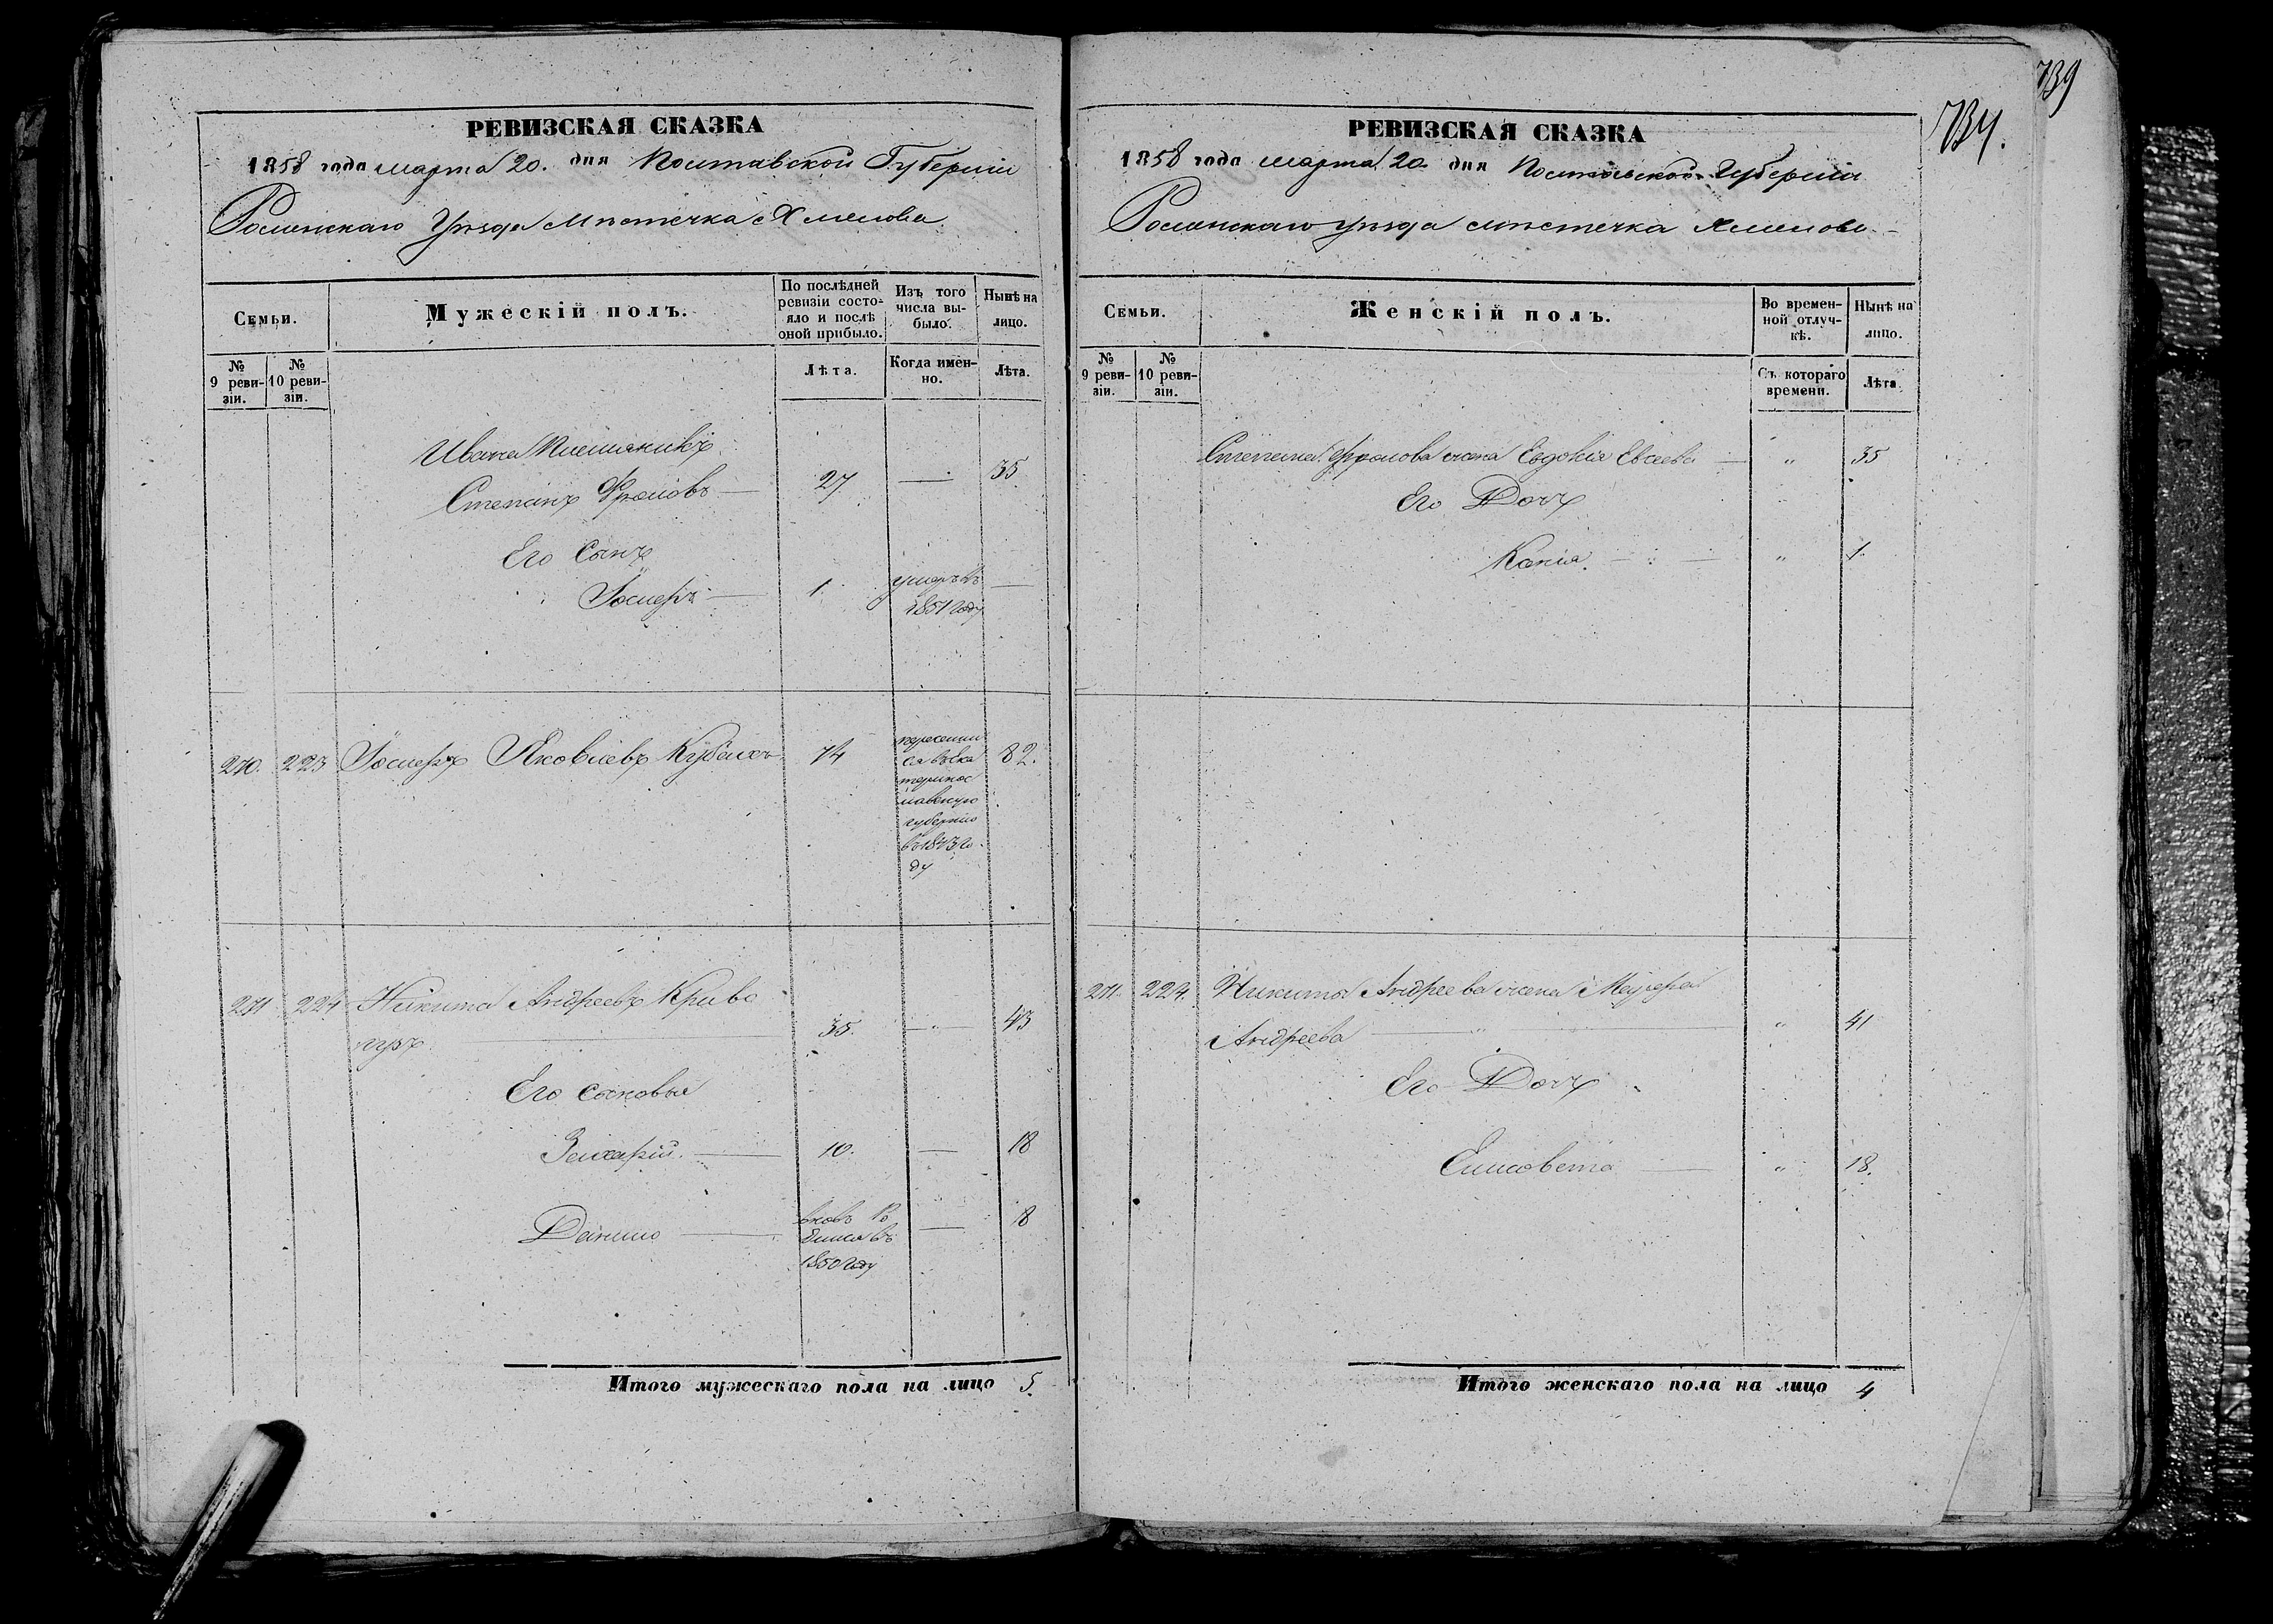 739
734.
РЕВИЗСКАЯ СКАЗКА
1858 года марта 20. дня Полтавской Губерніи
Роменскаго Уѣзда Мѣстечка Хмелова
Семьи.
Мужескій полъ.
По послѣдней ревизіи состояло и послѣ оной прибыло.
Изъ того числа выбыло.
Нынѣ на лицо.
№ 9 ревизіи.
№ 10 ревизіи.
Лѣта.
Когда именно.
Лѣта.
Ивана Племяникъ
Степанъ Фроловъ — 27 — 35
Его Сынъ
Іосифъ — 1. умеръ въ —
1851 году
270. 223 Іосифъ Яковлевъ 74 82.
переселил
ся въ Ека
теринос
лавскую
губернію
в 1843 го
ду
271 224 Никита Андреевъ Криво
пузъ 35. — " — 43
Его сыновья
Захарій. — 10. — 18
Данило — 8
1850 году
Итого мужескаго пола на лицо 5.
РЕВИЗСКАЯ СКАЗКА
1858 года марта 20. дня Полтавской Губерніи
Роменскаго уѣзда мѣстечка Хмелова
Семьи.
Женскій полъ.
Во временной отлучкѣ.
Нынѣ на лицо.
№ 9 ревизіи.
№ 10 ревизіи.
Съ котораго времени.
Лѣта.
Степана Фролова жена Евдокія Евсеева — " 35
Его Дочь
— " 1.
271. 224. Никиты Андреева жена
Андреева — " 41
Его Дочь
Елисавета — " 18.
Итого женскаго пола на лицо 4